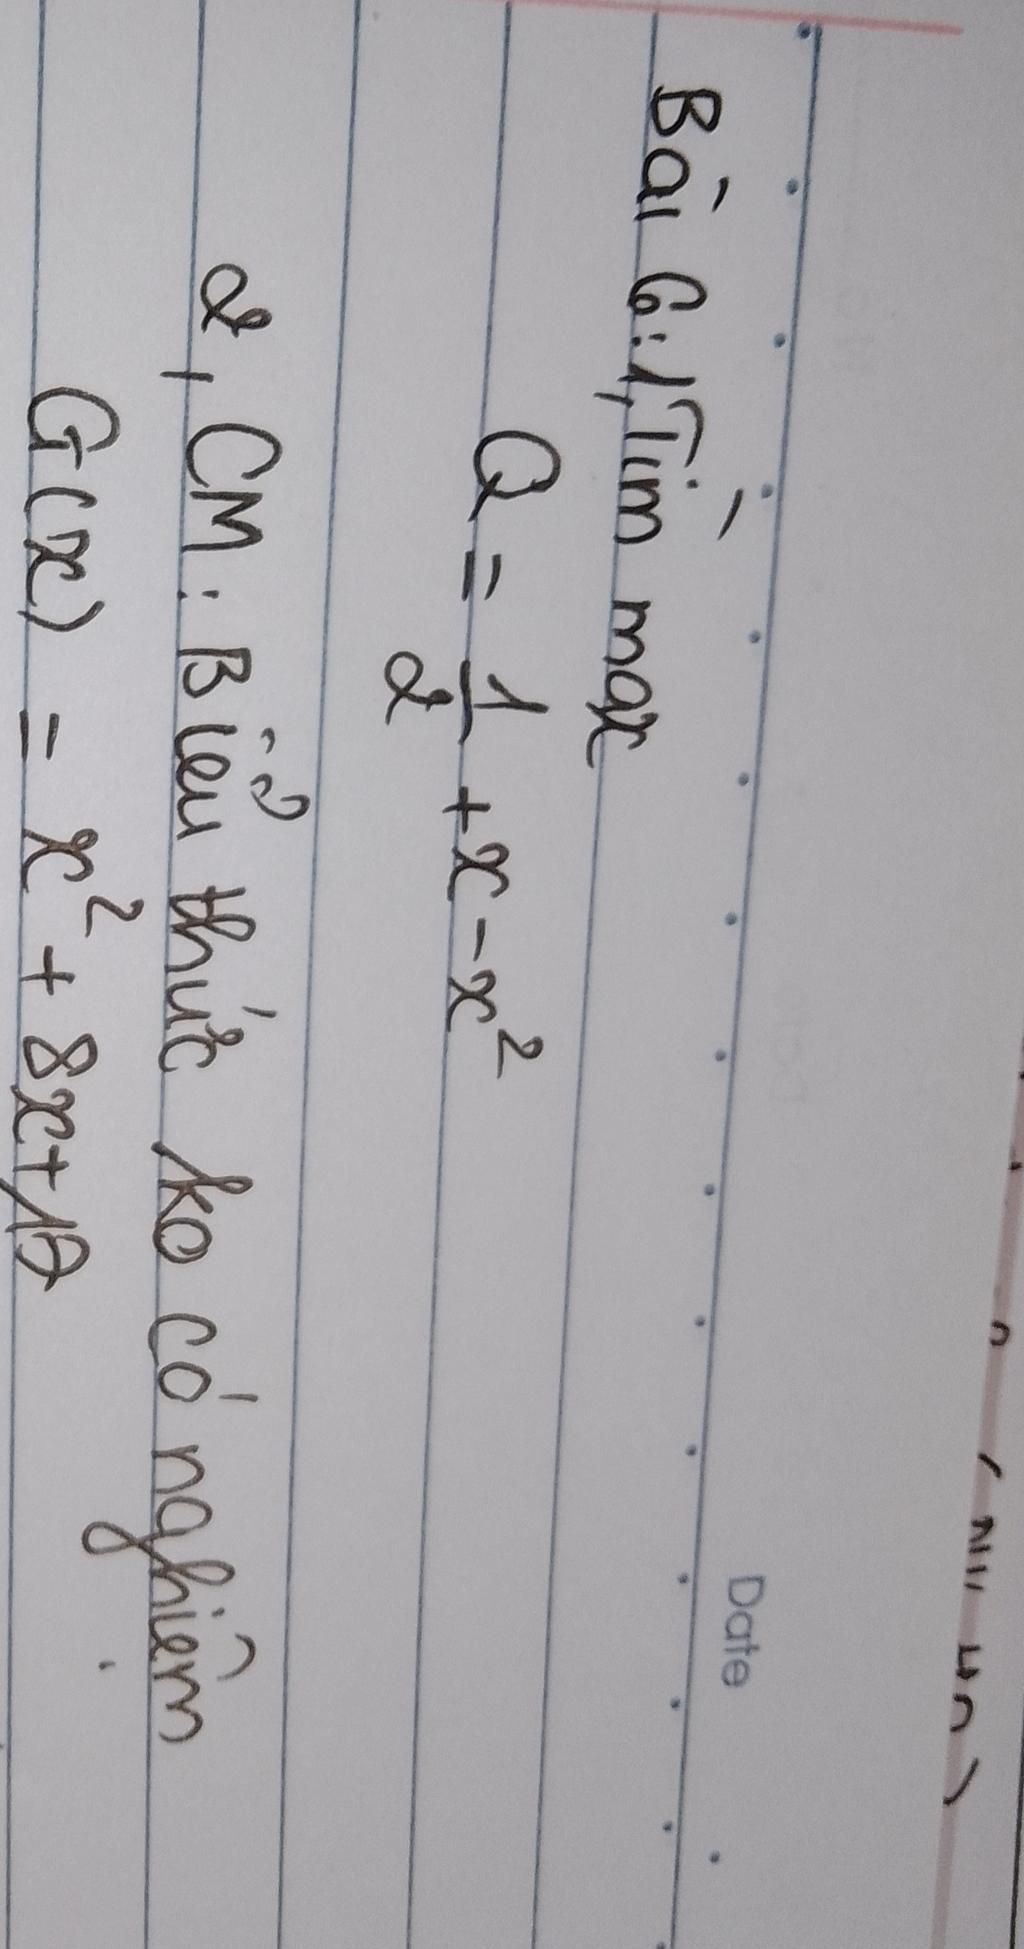 Date
Bài 6: 1, Tìm max
Q = 1/2 + x - x²
2, CM: Biểu thức ko có nghiệm
G(x) = x² + 8x + 17